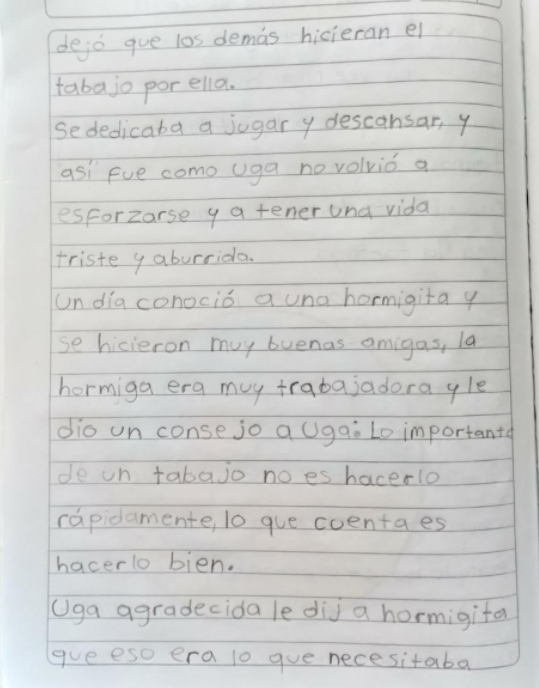 dejó que los demás hicieran el
tabajo por ella.
Se dedicaba a jugar y descansar, y
así fue como Uga no volvió a
esforzarse y a tener una vida
triste y aburrida.
Un día conoció a una hormigita y
se hicieron muy buenas amigas, la
hormiga era muy trabajadora y le
dio un consejo a Uga: Lo importante
de un tabajo no es hacerlo
rápidamente, lo que cuenta es
hacerlo bien.
Uga agradecida le dij a hormigita
que eso era lo que necesitaba